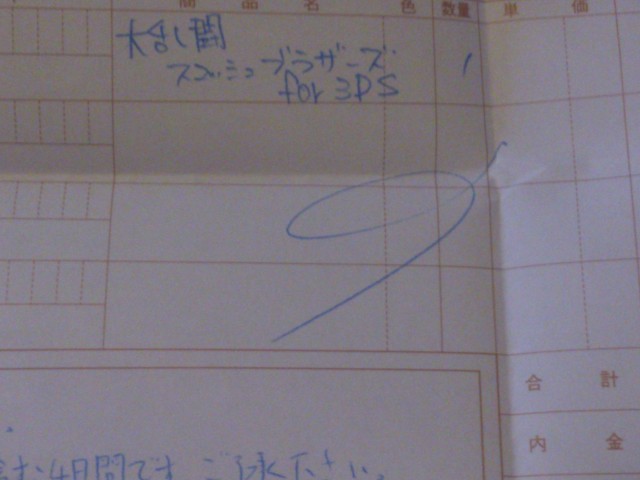 商 品 名 色 数量 単 価
大乱闘 1
スマッシュブラザーズ
for 3DS
合 計
内 金
4日間です ご了承下さい。